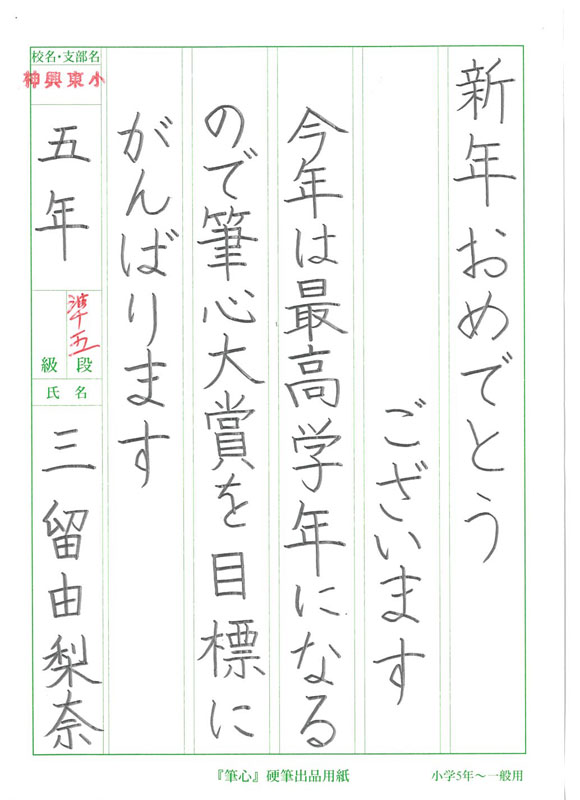 新年おめでとう
ございます
今年は最高学年になる
ので筆心大賞を目標に
がんばります
校名・支部名
神興東小
五年
準五
段
級
氏名
三留由梨奈
『筆心』硬筆出品用紙
小学5年～一般用